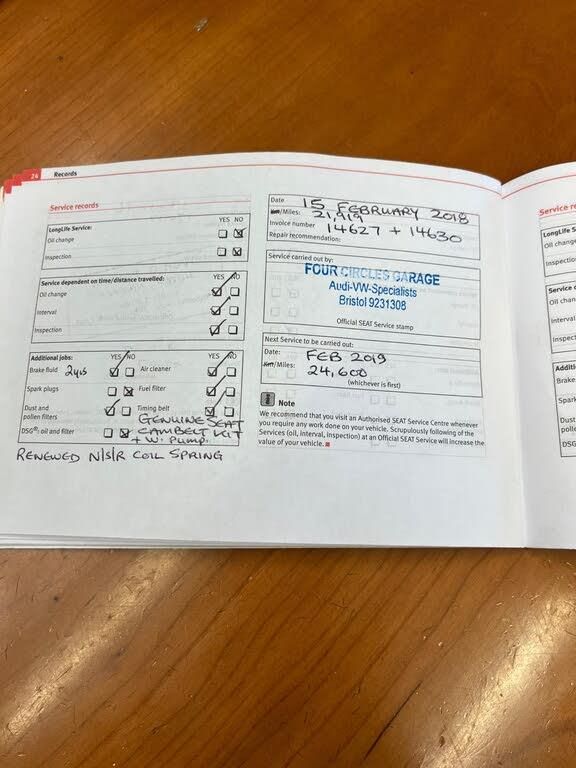 24 Records
Service records
YES NO
LongLife Service:
Oil change
Inspection
YES NO
Service dependent on time/distance travelled:
Oil change
Interval
Inspection
YES NO YES NO
Additional jobs:
Brake fluid 2yrs Air cleaner
Spark plugs Fuel filter
Dust and
pollen filters Timing belt
GENUINE SEAT
DSG®: oil and filter CAMBELT KIT
+ W. PUMP.
RENEWED N/S/R COIL SPRING
Date 15 FEBRUARY 2018
Km/Miles: 21,919
Invoice number 14627 + 14630
Repair recommendation:
Service carried out by:
FOUR CIRCLES GARAGE
Audi-VW-Specialists
Bristol 9231308
Official SEAT Service stamp
Next Service to be carried out:
Date: FEB 2019
Km/Miles: 24,600
(whichever is first)
Note
We recommend that you visit an Authorised SEAT Service Centre whenever
you require any work done on your vehicle. Scrupulously following of the
Services (oil, interval, inspection) at an Official SEAT Service will increase the
value of your vehicle.
Service re
LongLife S
Oil change
Inspectio
Service d
Oil chang
Interval
Inspectio
Additi
Brake
Spark
Dust
polle
DSG